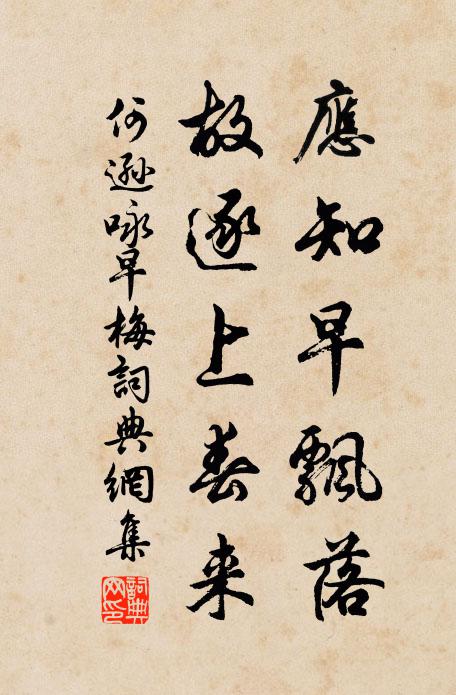 應知早飄落
故逐上春来
何遜咏早梅詞典網集
詞典网印